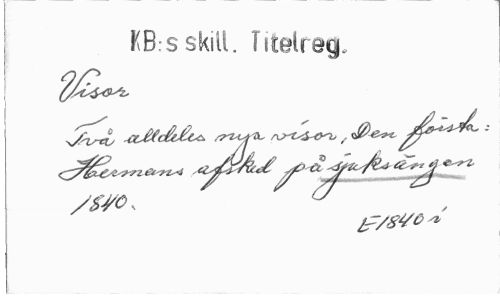 KB:s skill. Titelreg.
Visor
Två alldeles nya visor, Den första:
Hermans afsked på sjuksängen
1840.
E1840 i